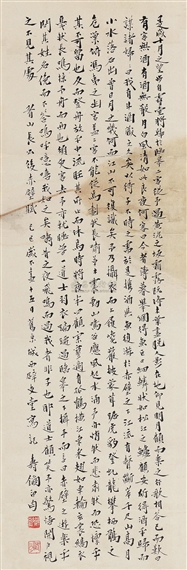 是歲十月之望步自雪堂將歸於臨皋二客從予過黃泥之坂霜露既降木葉盡脫人影在地仰見明月顧而樂之行歌相答已而歎曰
有客無酒有酒無肴月白風清如此良夜何客曰今者薄暮舉網得魚巨口細鱗狀如松江之鱸顧安所得酒乎歸而
謀諸婦婦曰我有斗酒藏之久矣以待子不時之需於是攜酒與魚復遊於赤壁之下江流有聲斷岸千尺山高月
小水落石出曾日月之幾何而江山不可復識矣予乃攝衣而上履巉巖披蒙茸踞虎豹登虬龍攀棲鶻之
危巢俯馮夷之幽宮蓋二客不能從焉劃然長嘯草木震動山鳴谷應風起水涌予亦悄然而悲肅然而恐凜乎
其不可留也反而登舟放乎中流聽其所止而休焉時夜將半四顧寂寥適有孤鶴橫江東來翅如車輪玄裳縞衣
戛然長鳴掠予舟而西也須臾客去予亦就睡夢一道士羽衣翩躚過臨皋之下揖予而言曰赤壁之遊樂乎
問其姓名俯而不答嗚呼噫嘻我知之矣疇昔之夜飛鳴而過我者非子也耶道士顧笑予亦驚寤開戶視
之不見其處 長公後赤壁賦 歲不盡十五日